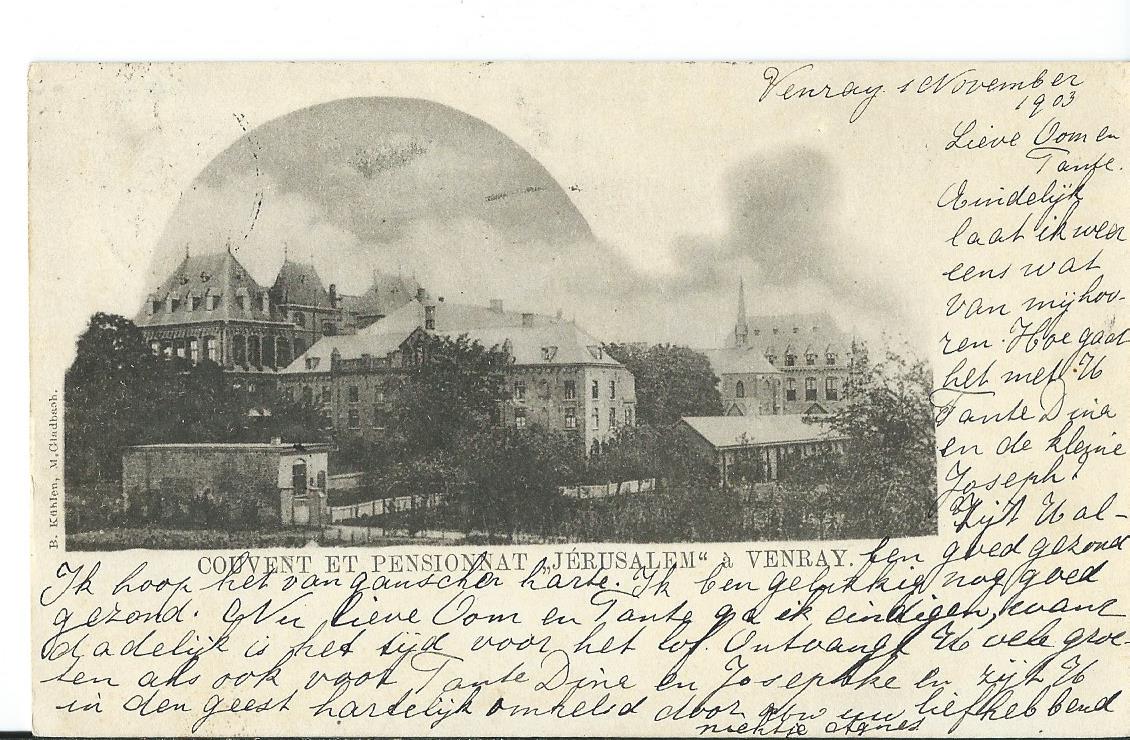 Venray 1 November
1903
Lieve Oom en
Tante.
Eindelijk
laat ik weer
eens wat
van mij hoo-
ren. Hoe gaat
het met U
Tante Dina
en de kleine
Joseph?
Zijt U al-
len goed gezond
B. Kühlen, M. Gladbach.
COUVENT ET PENSIONNAT „JÉRUSALEM“ à VENRAY.
Ik hoop het van ganscher harte. Ik ben gelukkig nog goed
gezond. Nu lieve Oom en Tante ga ik eindigen, want
dadelijk is het tijd voor het lof. Ontvangt U vele groe-
ten als ook voor Tante Dina en Josephke en zijt U
in den geest hartelijk omhelsd door uw liefhebbend
nichtje Agnes